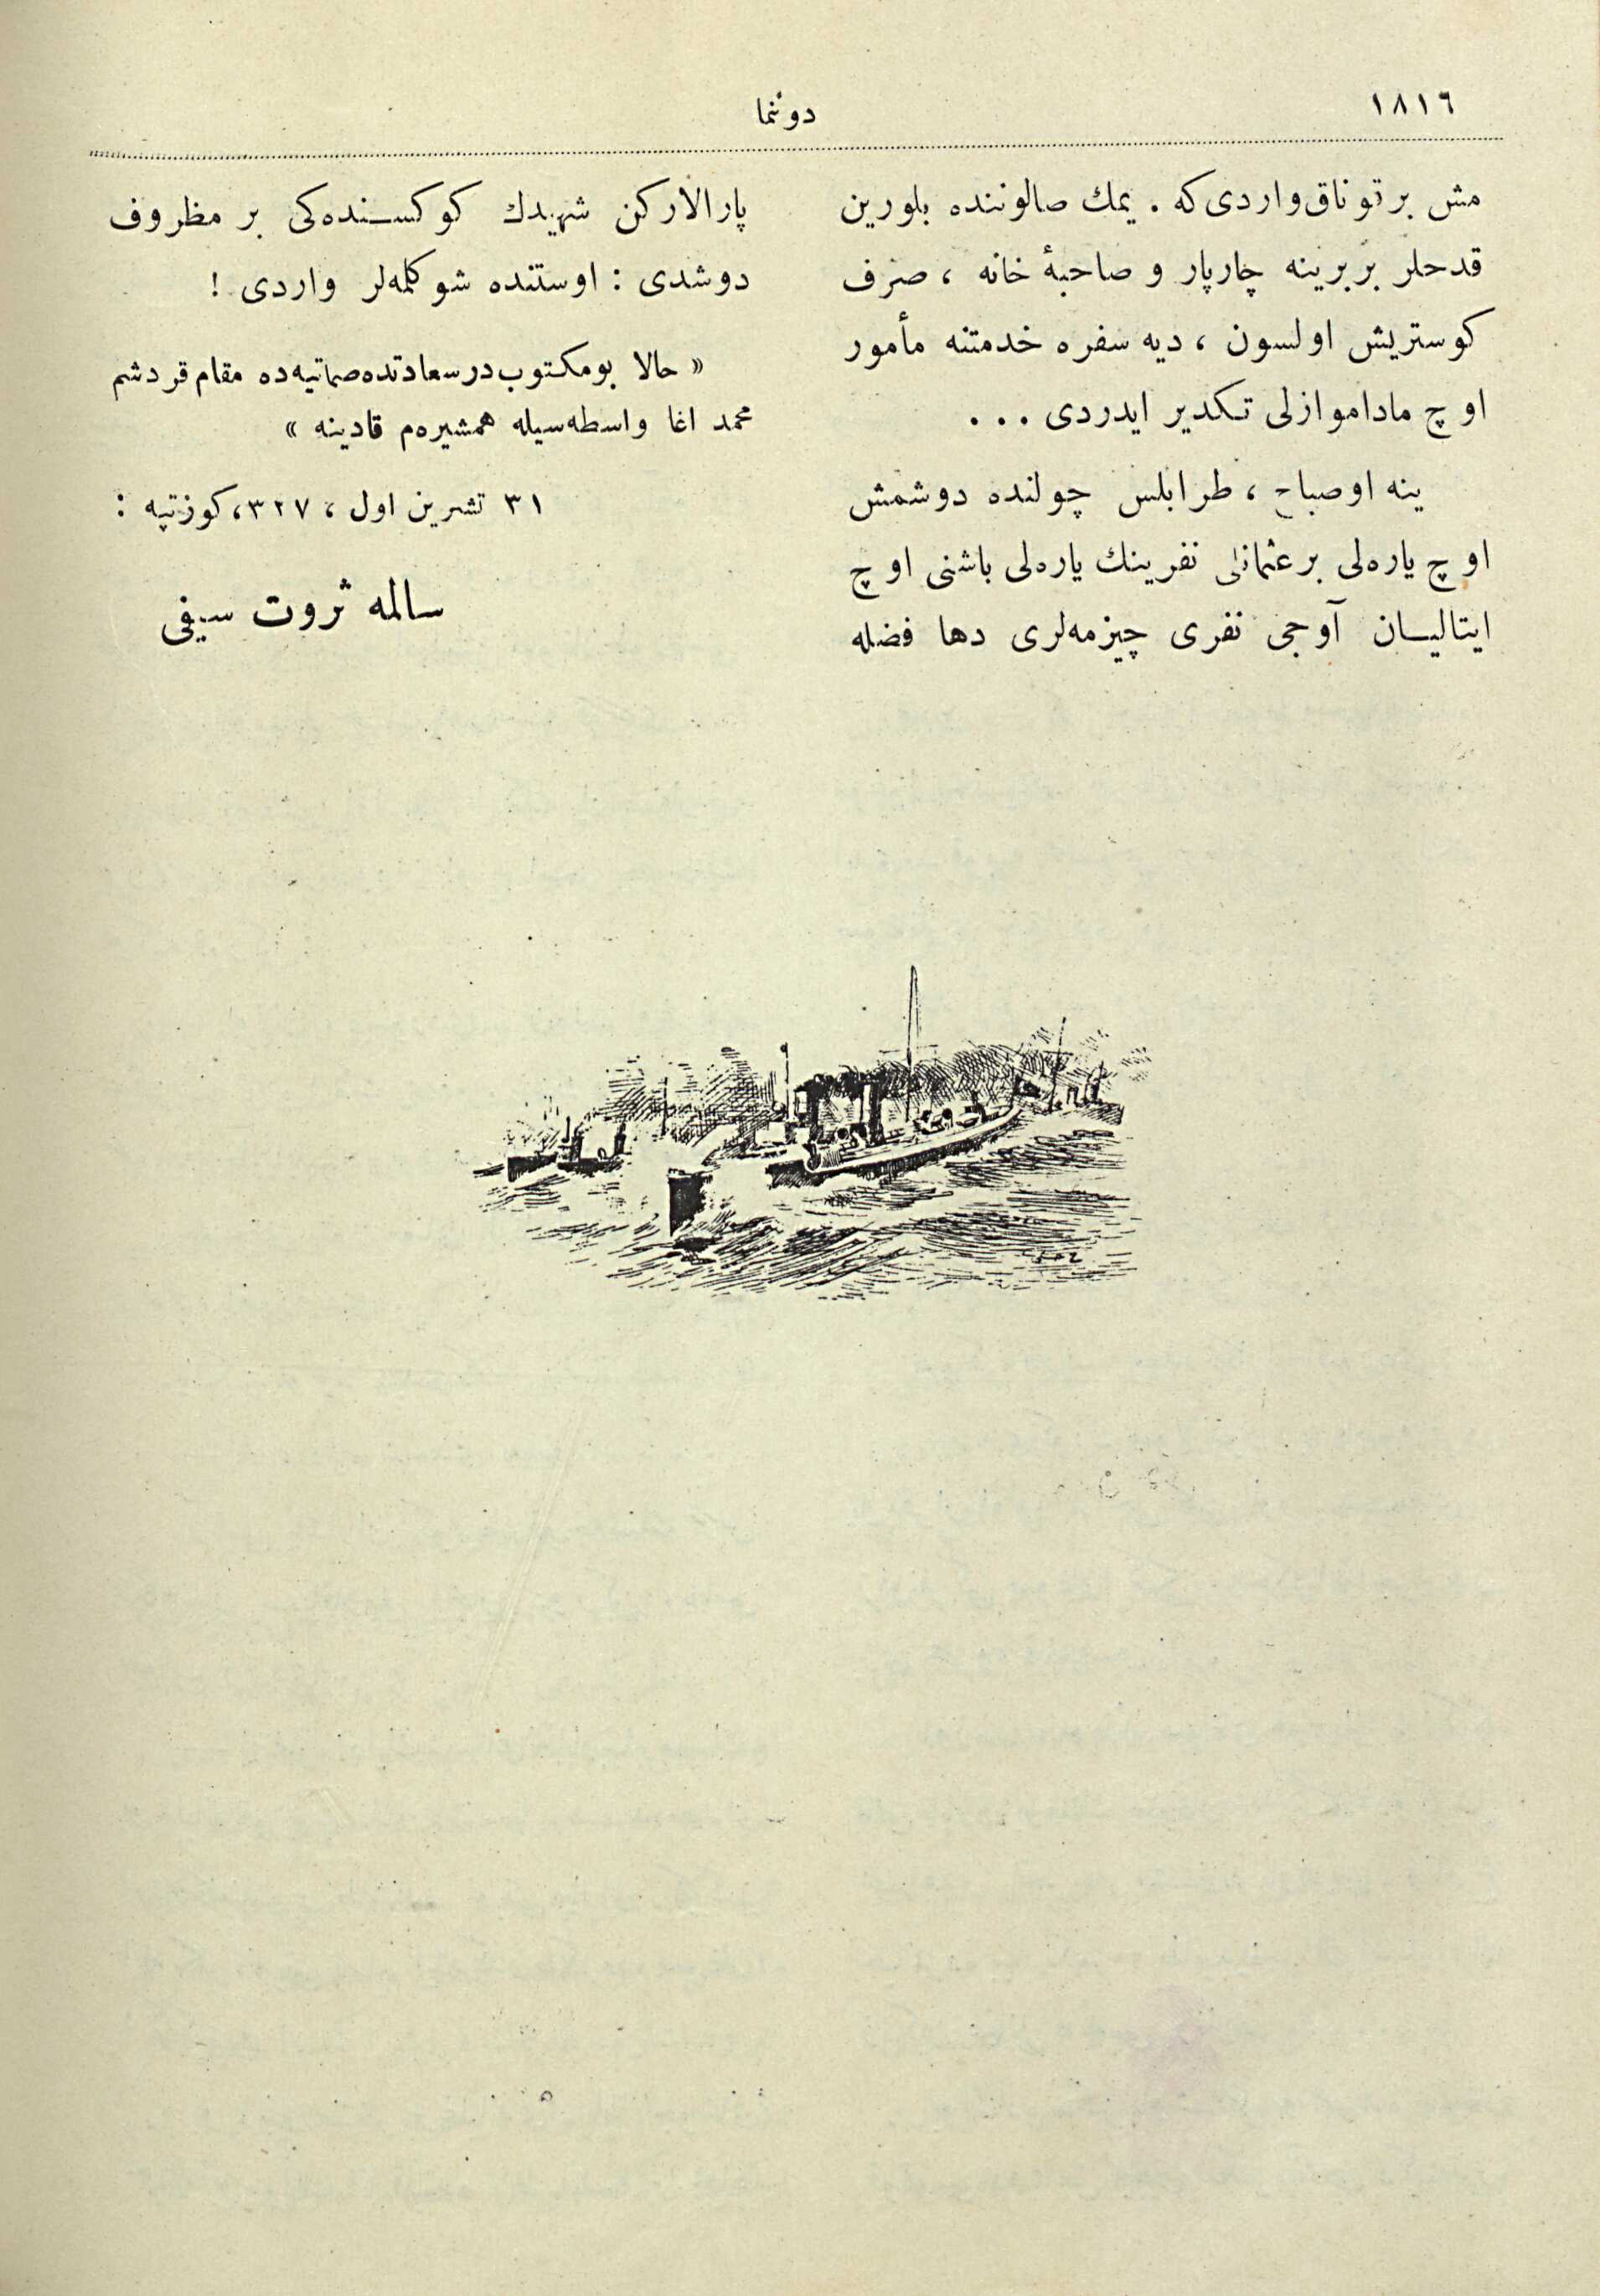 ١٨١٦
دوننما
مش بر قوناق واردی که . یمك صالوننده بلورین
قدحلر بربرینه چارپار و صاحبهٔ خانه ، صرف
کوستریش اولسون ، دیه سفره خدمتنه مأمور
اوچ ماداموازلی تکدیر ایدردی . . .
ینه او صباح ، طرابلس چولنده دوشمش
اوچ یاره‌لی بر عثمانلی نفرینك یاره‌لی باشنی اوچ
ایتالیان آوجی نفری چیزمه‌لری دها فضله
پارالارکن شهیدك کوکسنده‌کی بر مظروف
دوشدی : اوستنده شو کلمه‌لر واردی !
« حالا بو مکتوب درسعادتده صماتیه‌ده مقام قردشم
محمد اغا واسطه‌سیله همشیره‌م قادینه »
٣١ تشرین اول ، ٣٢٧، کوزتپه :
سالمه ثروت سیفی